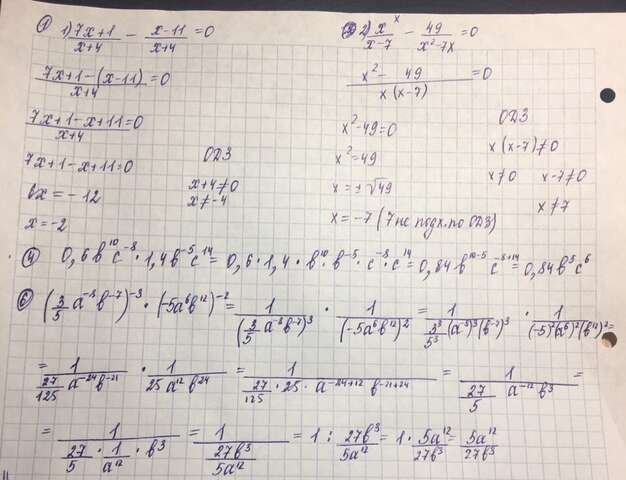 ① 1) (7x+1)/(x+4) - (x-11)/(x+4) = 0
(7x+1-(x-11))/(x+4) = 0
(7x+1-x+11)/(x+4) = 0
7x+1-x+11=0
6x = -12
x = -2
ОДЗ
x+4≠0
x≠-4
2) x/(x-7) ˣ - 49/(x²-7x) = 0
(x² - 49)/(x(x-7)) = 0
x²-49=0
x²=49
x = ±√49
x = -7 (7 не подх. по ОДЗ)
ОДЗ
x(x-7)≠0
x≠0 x-7≠0
x≠7
④ 0,6b¹⁰c⁻⁸ · 1,4b⁻⁵c¹⁴ = 0,6·1,4·b¹⁰·b⁻⁵·c⁻⁸·c¹⁴ = 0,84b¹⁰⁻⁵c⁻⁸⁺¹⁴ = 0,84b⁵c⁶
⑥ (3/5 a⁻⁸b⁻⁷)⁻³ · (-5a⁶b¹²)⁻² = 1/(3/5 a⁻⁸b⁻⁷)³ · 1/(-5a⁶b¹²)² = 1/(3³/5³ (a⁻⁸)³(b⁻⁷)³) · 1/((-5)²(a⁶)²(b¹²)²) =
= 1/(27/125 a⁻²⁴b⁻²¹) · 1/(25a¹²b²⁴) = 1/(27/125 · 25 · a⁻²⁴⁺¹²b⁻²¹⁺²⁴) = 1/(27/5 a⁻¹²b³) =
= 1/(27/5 · 1/a¹² · b³) = 1/(27b³/5a¹²) = 1 : 27b³/5a¹² = 1 · 5a¹²/27b³ = 5a¹²/27b³